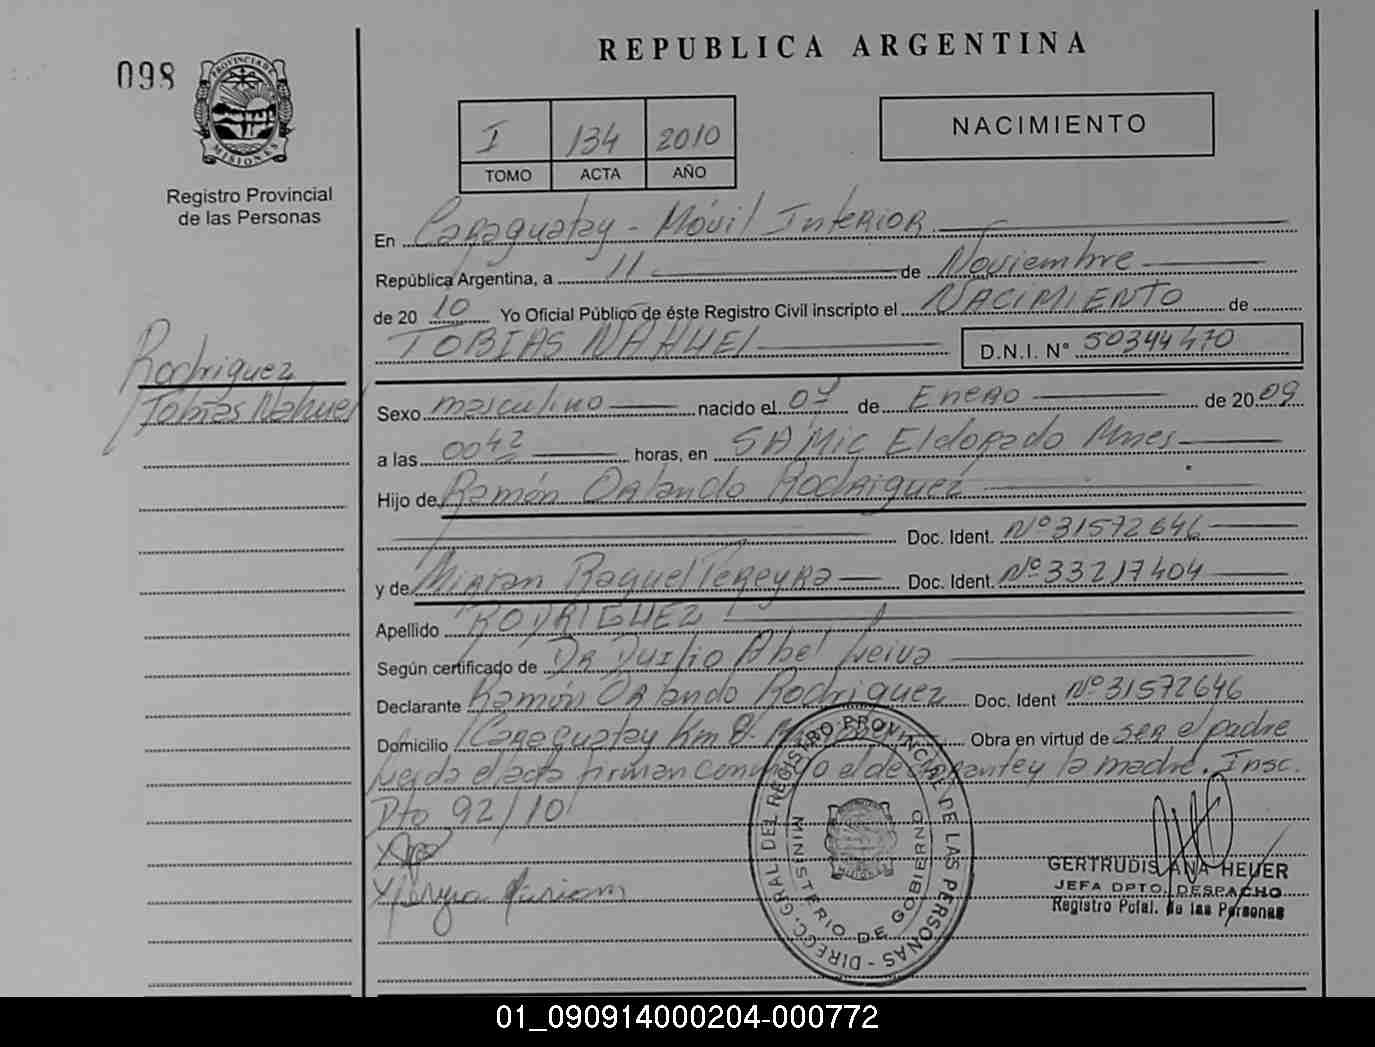 098
PROVINCIA DE
MISIONES
Registro Provincial
de las Personas
REPUBLICA ARGENTINA
I 134 2010
TOMO ACTA AÑO
NACIMIENTO
En Caraguatay - Móvil Interior
República Argentina, a 11 de Noviembre
de 20 10 Yo Oficial Público de éste Registro Civil inscripto el NACIMIENTO de
TOBIAS NAHUEL D.N.I. Nº 50344470
Rodriguez
Tobias Nahuel
Sexo masculino nacido el de Enero de 20 09
a las 0042 horas, en SAMIC Eldorado Mnes
Hijo de Ramón Orlando Rodriguez
Doc. Ident. Nº 31572646
y de Mirian Raquel Pereyra Doc. Ident. Nº 33217404
Apellido RODRIGUEZ
Según certificado de DR Duilio Abel Leiva
Declarante Ramón Orlando Rodriguez Doc. Ident Nº 31572646
Domicilio Caraguatay Km 8. Obra en virtud de ser el padre
Leida el acta firman conmigo el declarante y la madre. Insc.
Dto 92/10
DIRECC. GRAL. DEL REGISTRO PROVINCIAL DE LAS PERSONAS -
MINISTERIO DE GOBIERNO
GERTRUDIS ANA HEUER
JEFA DPTO. DESPACHO
Registro Pcial. de las Personas
01_090914000204-000772